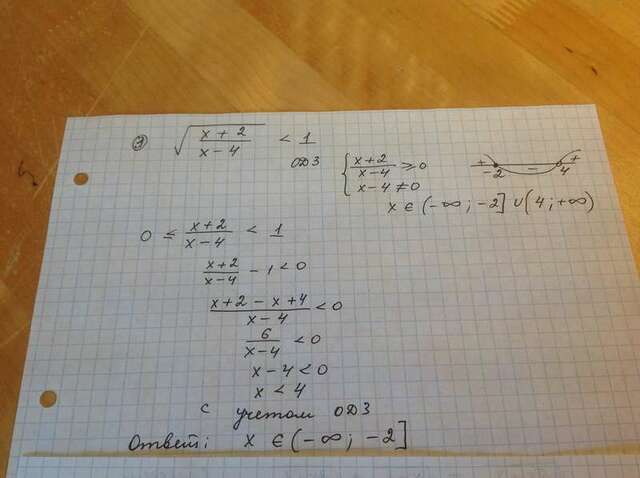 ③ √((x + 2)/(x - 4)) < 1
ОДЗ { (x+2)/(x-4) ≥ 0
x-4 ≠ 0
+ -2 - 4 +
x ∈ (-∞; -2] ∪ (4; +∞)
0 ≤ (x+2)/(x-4) < 1
(x+2)/(x-4) - 1 < 0
(x+2 - x+4)/(x-4) < 0
6/(x-4) < 0
x-4 < 0
x < 4
с учетом ОДЗ
Ответ: x ∈ (-∞; -2]